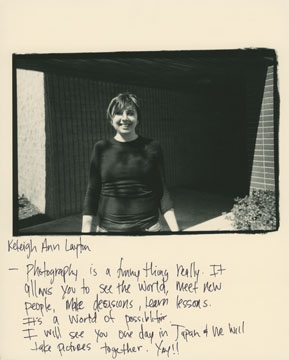 Keleigh Ann Layton
– Photography is a funny thing really. It
allows you to see the world, meet new
people, make decisions, learn lessons.
It's a world of possibilities.
I will see you one day in Japan & we will
take pictures together. Yay!!